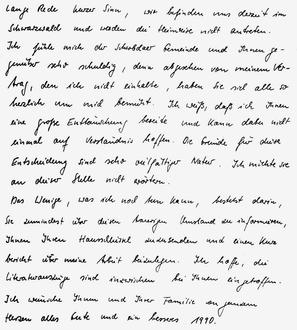 Lange Rede kurzer Sinn, wir befinden uns derzeit im
Schwarzwald und werden die Heimreise nicht antreten.
Ich fühle mich der Gemeinde und Ihnen ge-
genüber sehr schuldig, denn abgesehen von meinem Ver-
trag, den ich nicht einhalte, haben Sie sich alle so
herzlich um mich bemüht. Ich weiß, daß ich Ihnen
eine große Enttäuschung bereite und kann dabei nicht
einmal auf Verständnis hoffen. Die Gründe für diese
Entscheidung sind sehr vielfältiger Natur. Ich möchte sie
an dieser Stelle nicht erörtern.
Das Wenige, was ich noch tun kann, besteht darin,
Sie zumindest über diesen traurigen Umstand zu informieren,
Ihnen Ihren Hausschlüssel zuzusenden und einen Kurz
bericht über meine Arbeit beizulegen. Ich hoffe, die
Literaturauszüge sind inzwischen bei Ihnen eingetroffen.
Ich wünsche Ihnen und Ihrer Familie von ganzem
Herzen alles Gute und ein besseres 1990.